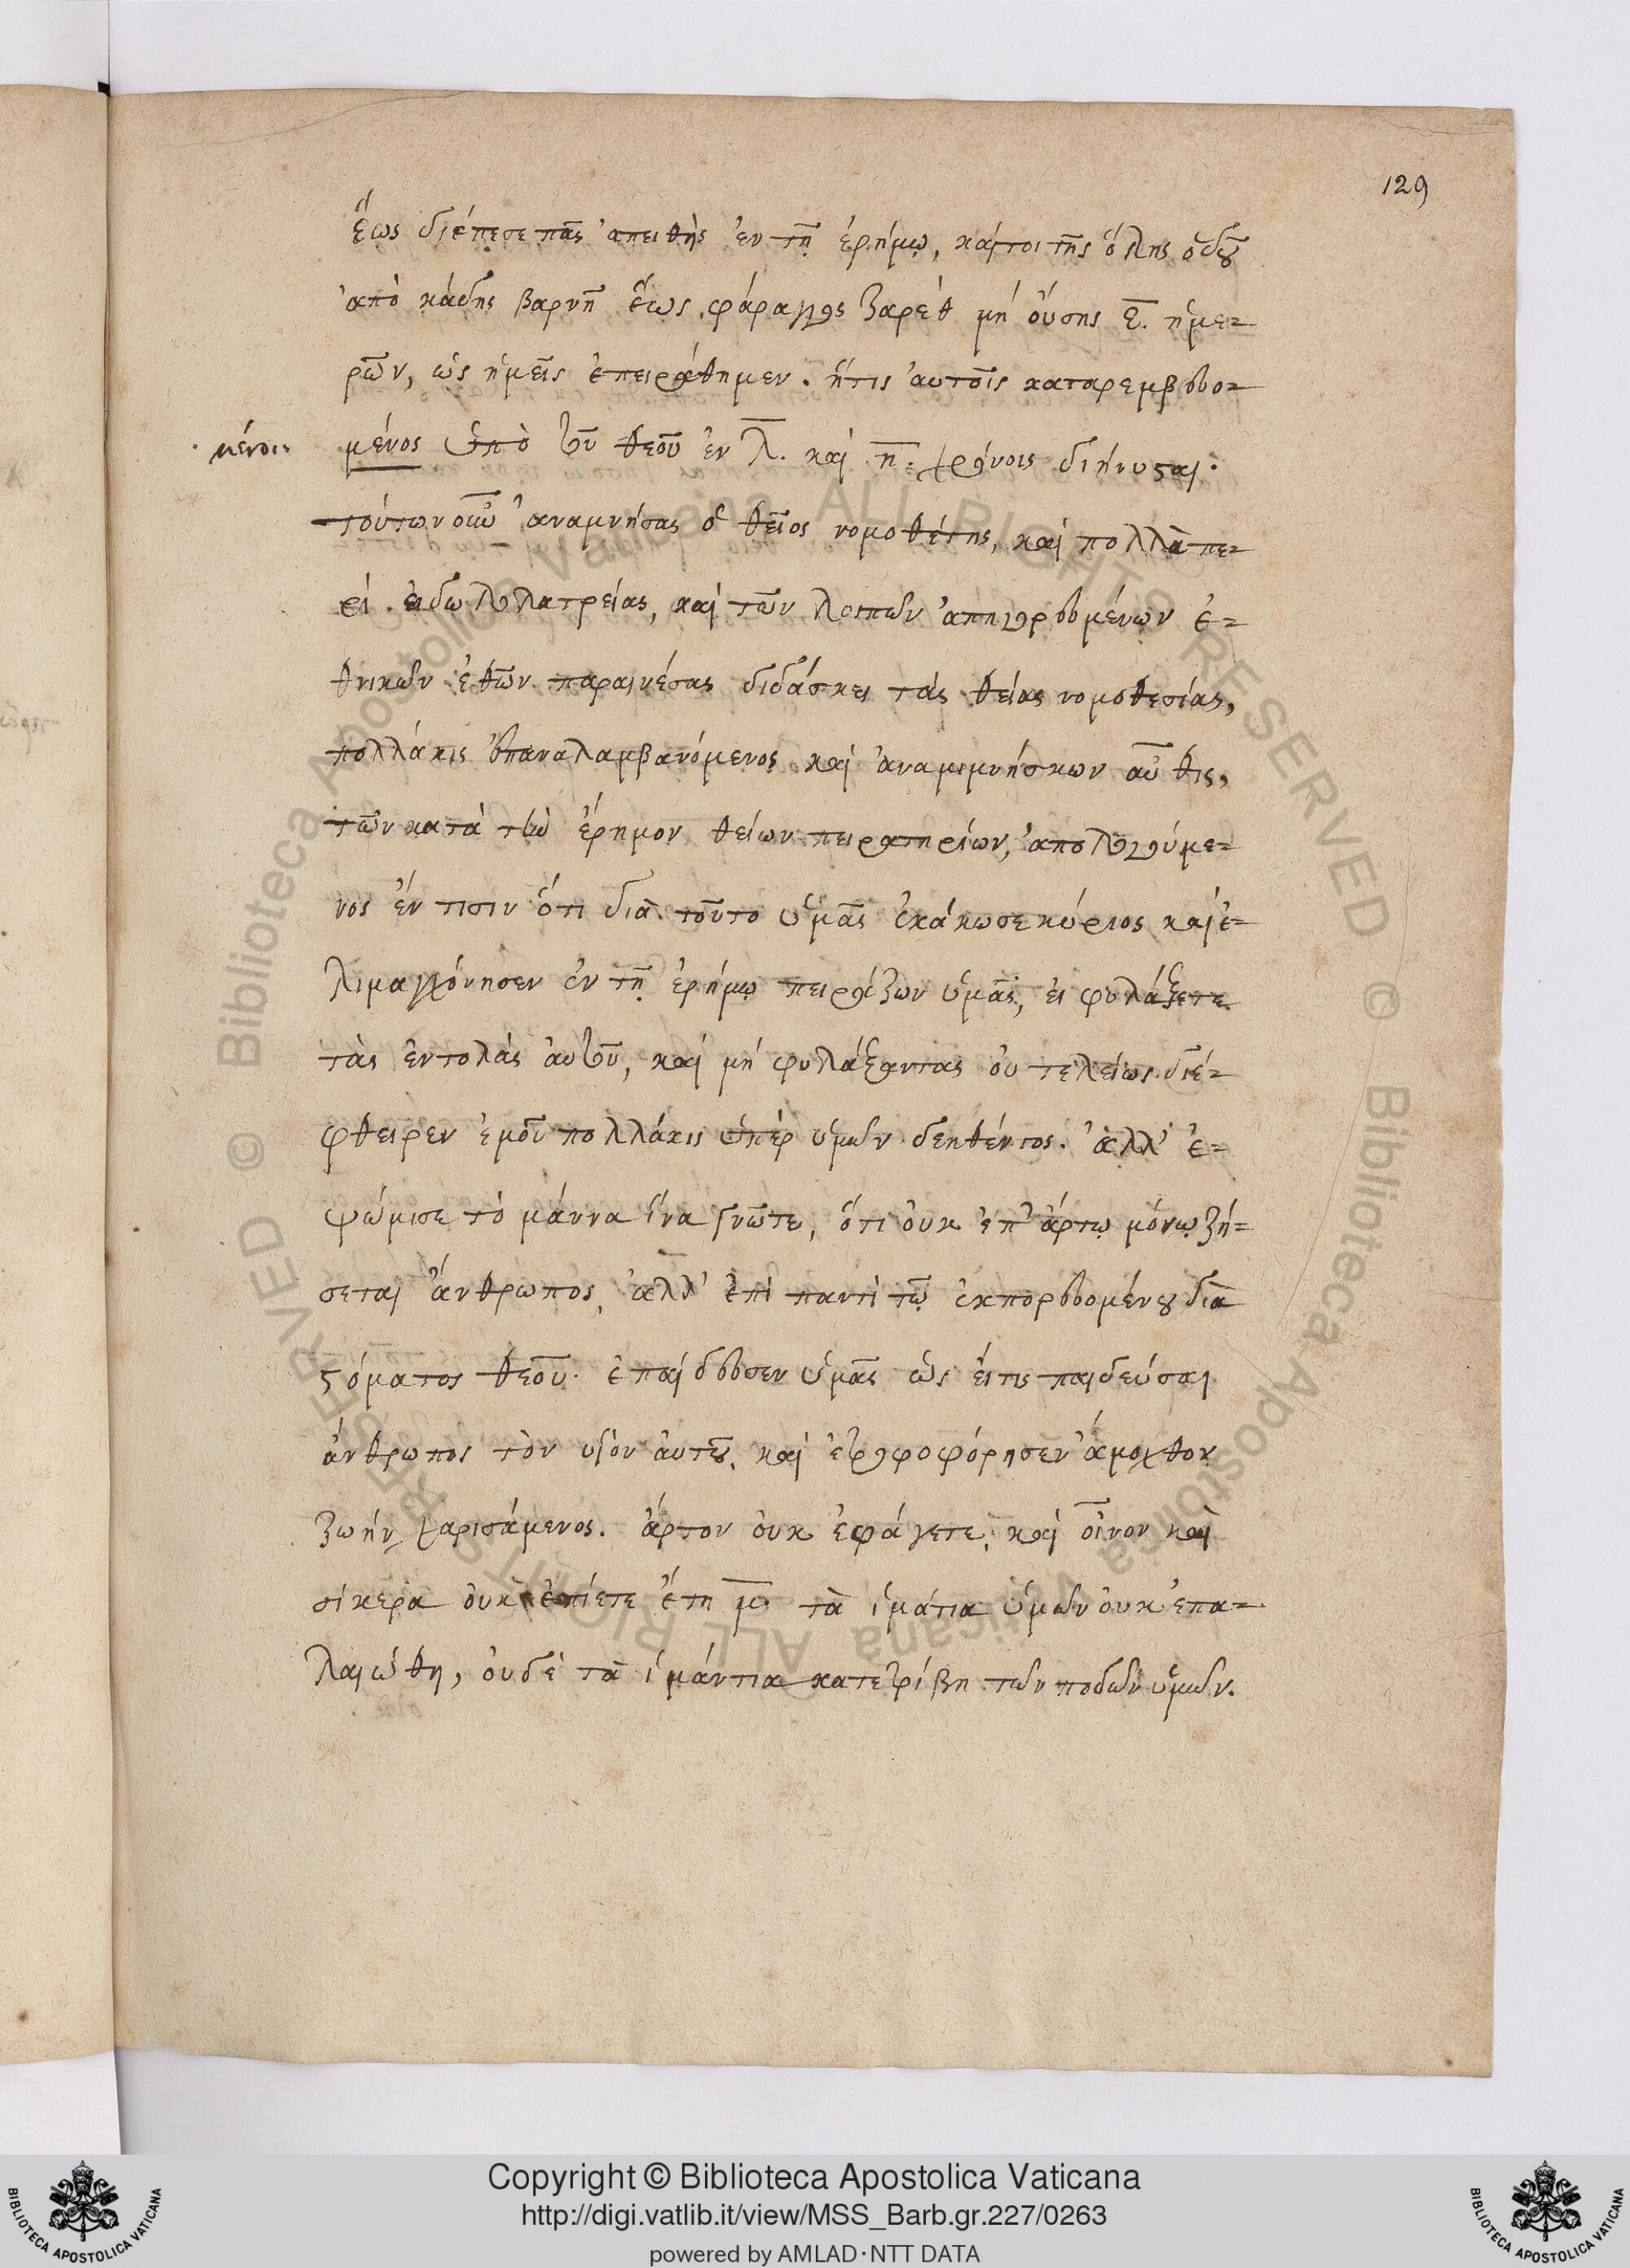 129
ἕως διέπεσε πᾶς ἀπειθὴς ἐν τῇ ἐρήμῳ, καίτοι τῆς ὅλης ὁδοῦ
ἀπὸ κάδης βαρνῆ ἕως φάραγγος ζαρὲθ μὴ οὔσης ε̅. ἡμε=
ρῶν, ὡς ἡμεῖς ἐπειράθημεν. ἥτις αὐτοῖς καταρεμβευο=
μένοι.
μένος ὑπὸ τοῦ θεοῦ ἐν λ̅. καὶ η̅. χρόνοις διήνυσται.
τούτων οὖν ἀναμνήσας ὁ θεῖος νομοθέτης, καὶ πολλὰ πε=
ρὶ εἰδωλολατρείας, καὶ τῶν λοιπῶν ἀπηγορευμένων ἐ=
θνικῶν ἐθῶν παραινέσας διδάσκει τὰς θείας νομοθεσίας,
πολλάκις ἐπαναλαμβανόμενος καὶ ἀναμιμνήσκων αὖθις,
τῶν κατὰ τὴν ἔρημον θείων πειρατηρίων, ἀπολογούμε=
νος ἔν τισιν ὅτι διὰ τοῦτο ὑμᾶς ἐκάκωσε κύριος καὶ ἐ=
λιμαγχόνησεν ἐν τῇ ἐρήμῳ πειράζων ὑμᾶς, εἰ φυλάξετε
τὰς ἐντολὰς αὐτοῦ, καὶ μὴ φυλάξαντας οὐ τελείως διέ=
φθειρεν ἐμοῦ πολλάκις ὑπὲρ ὑμῶν δεηθέντος. ἀλλ' ἐ=
ψώμισε τὸ μάννα ἵνα γνῶτε, ὅτι οὐκ ἐπ' ἄρτῳ μόνῳ ζή=
σεται ἄνθρωπος, ἀλλ' ἐπὶ παντὶ τῷ ἐκπορευομένου διὰ
στόματος θεοῦ. ἐπαίδευσεν ὑμᾶς ὡς εἴτις παιδεύσαι
ἄνθρωπος τὸν υἱὸν αὐτοῦ, καὶ ἐτροφοφόρησεν ἄμοχθον
ζωὴν χαρισάμενος. ἄρτον οὐκ ἐφάγετε, καὶ οἶνον καὶ
σίκερα οὐκ ἐπίετε ἔτη μ̅. τὰ ἱμάτια ὑμῶν οὐκ ἐπα=
λαιώθη, οὐδὲ τὰ ἱμάντια κατετρίβη τῶν ποδῶν ὑμῶν.
© Biblioteca Apostolica Vaticana ALL RIGHTS RESERVED © Biblioteca Apostolica Vaticana ALL RIGHTS RESERVED
Copyright © Biblioteca Apostolica Vaticana
http://digi.vatlib.it/view/MSS_Barb.gr.227/0263
powered by AMLAD·NTT DATA
BIBLIOTECA APOSTOLICA VATICANA
BIBLIOTECA APOSTOLICA VATICANA